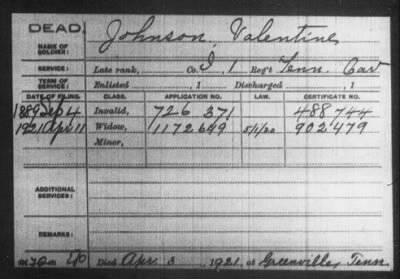 DEAD
Johnson, Valentine
NAME OF SOLDIER:
SERVICE: Late rank, Co. I, 1 Reg't Tenn. Cav
TERM OF SERVICE: Enlisted , 1 Discharged , 1
DATE OF FILING. CLASS. APPLICATION NO. LAW. CERTIFICATE NO.
1889 Sep 4 Invalid, 726 371 488 744
1921 Apr 11 Widow, 1172 649 5/1/20 902 479
Minor,
ADDITIONAL SERVICES:
REMARKS:
Died Apr. 3, 1921, at Greenville, Tenn